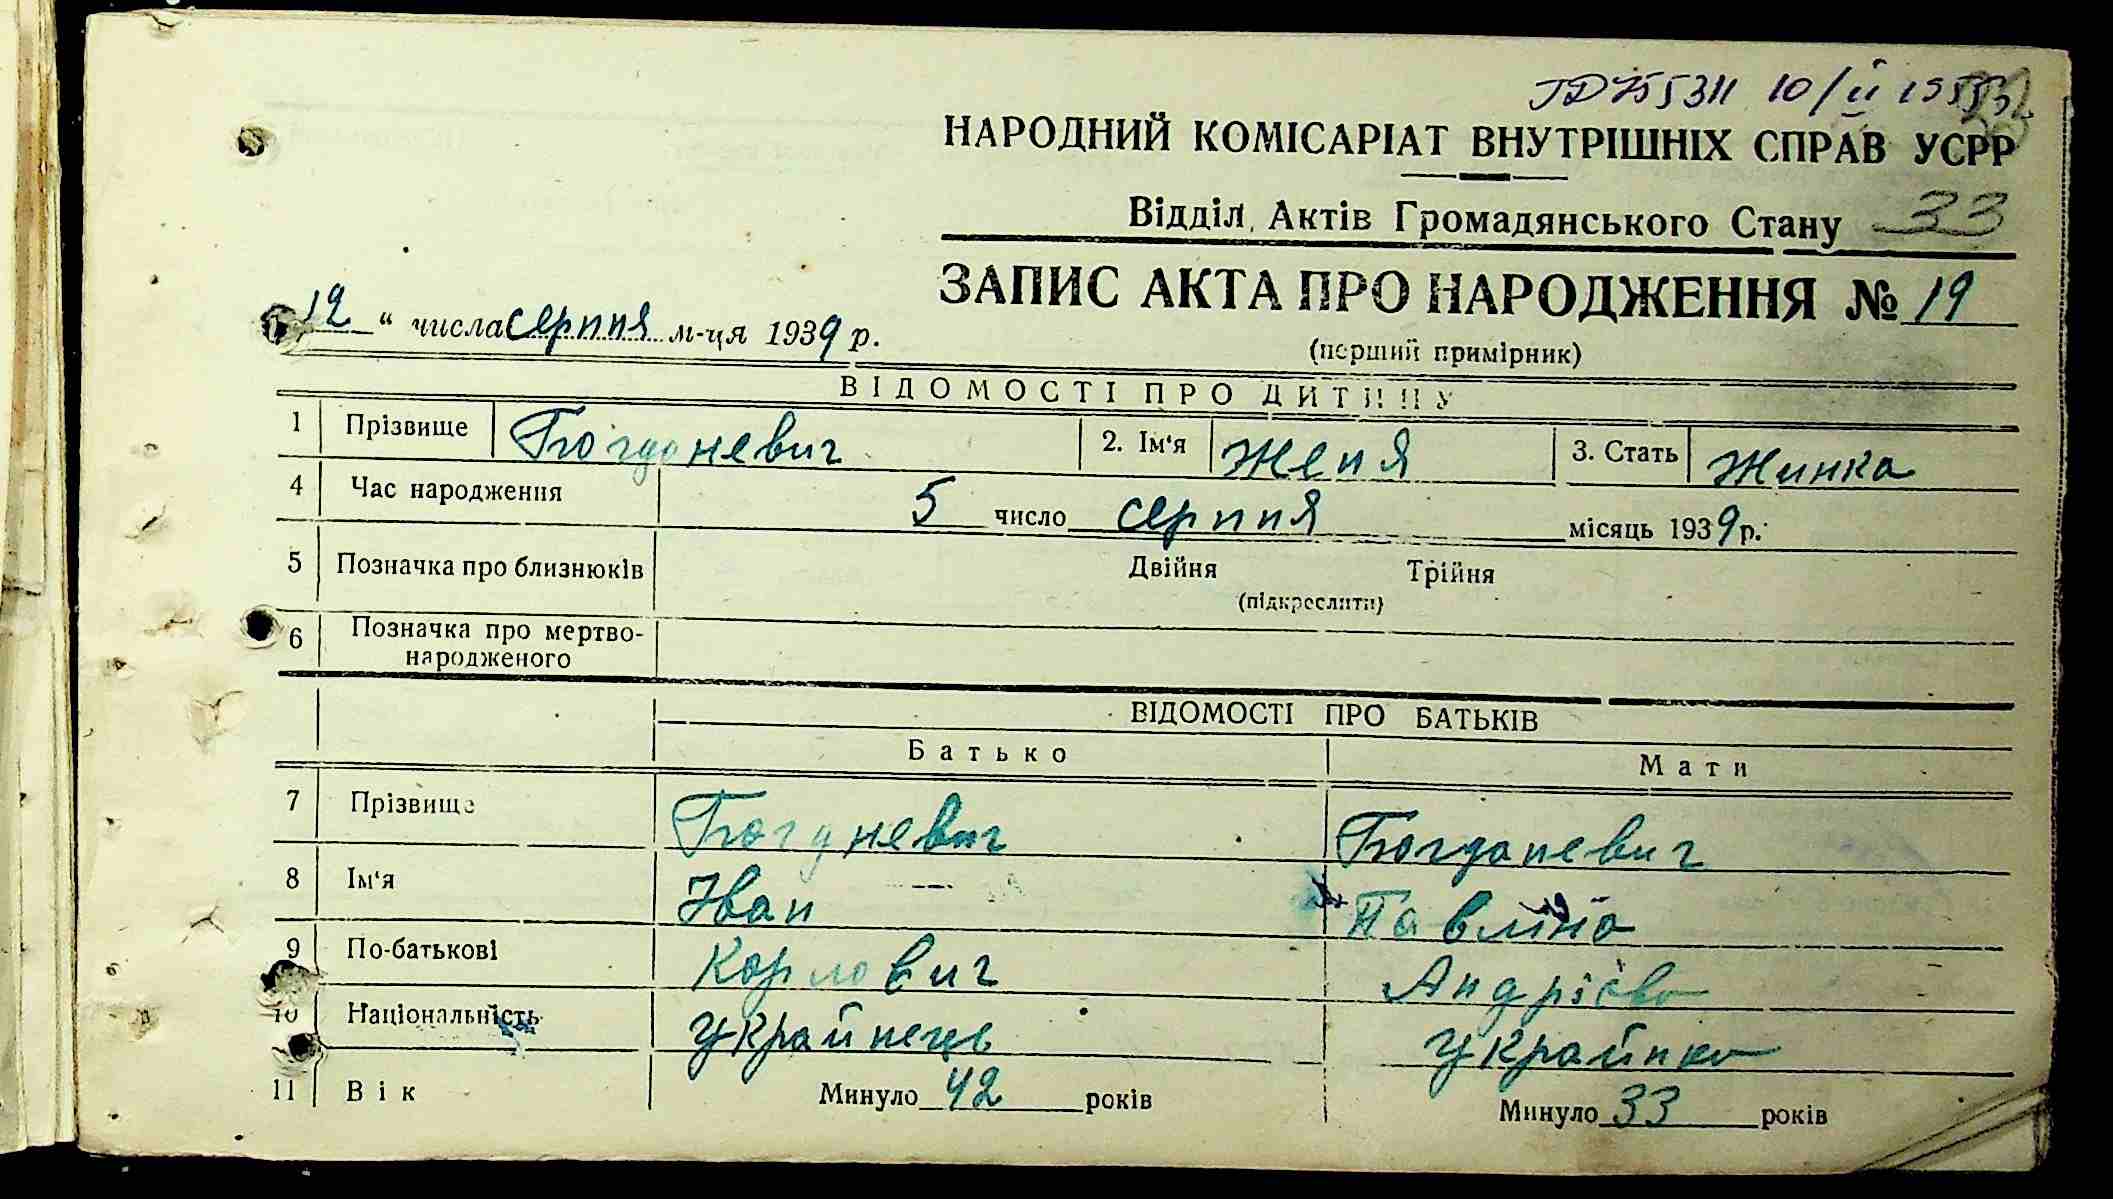 10/II 1955
НАРОДНИЙ КОМІСАРІАТ ВНУТРІШНІХ СПРАВ УСРР
Відділ Актів Громадянського Стану 33
ЗАПИС АКТА ПРО НАРОДЖЕННЯ № 19
12 “ числа серпня м-ця 1939 р.
(перший примірник)
ВІДОМОСТІ ПРО ДИТИНУ
1 Прізвище Богдоневич 2. Ім‘я Женя 3. Стать Жинка
4 Час народження 5 число серпня місяць 1939 р.
5 Позначка про близнюків Двійня Трійня
(підкреслити)
6 Позначка про мертво-
народженого
ВІДОМОСТІ ПРО БАТЬКІВ
Батько Мати
7 Прізвище Богдуневич Богданевич
8 Ім‘я Іван Павліна
9 По-батькові Карлович Андрієва
10 Національність Украйнець Украйнка
11 Вік Минуло 42 років Минуло 33 років